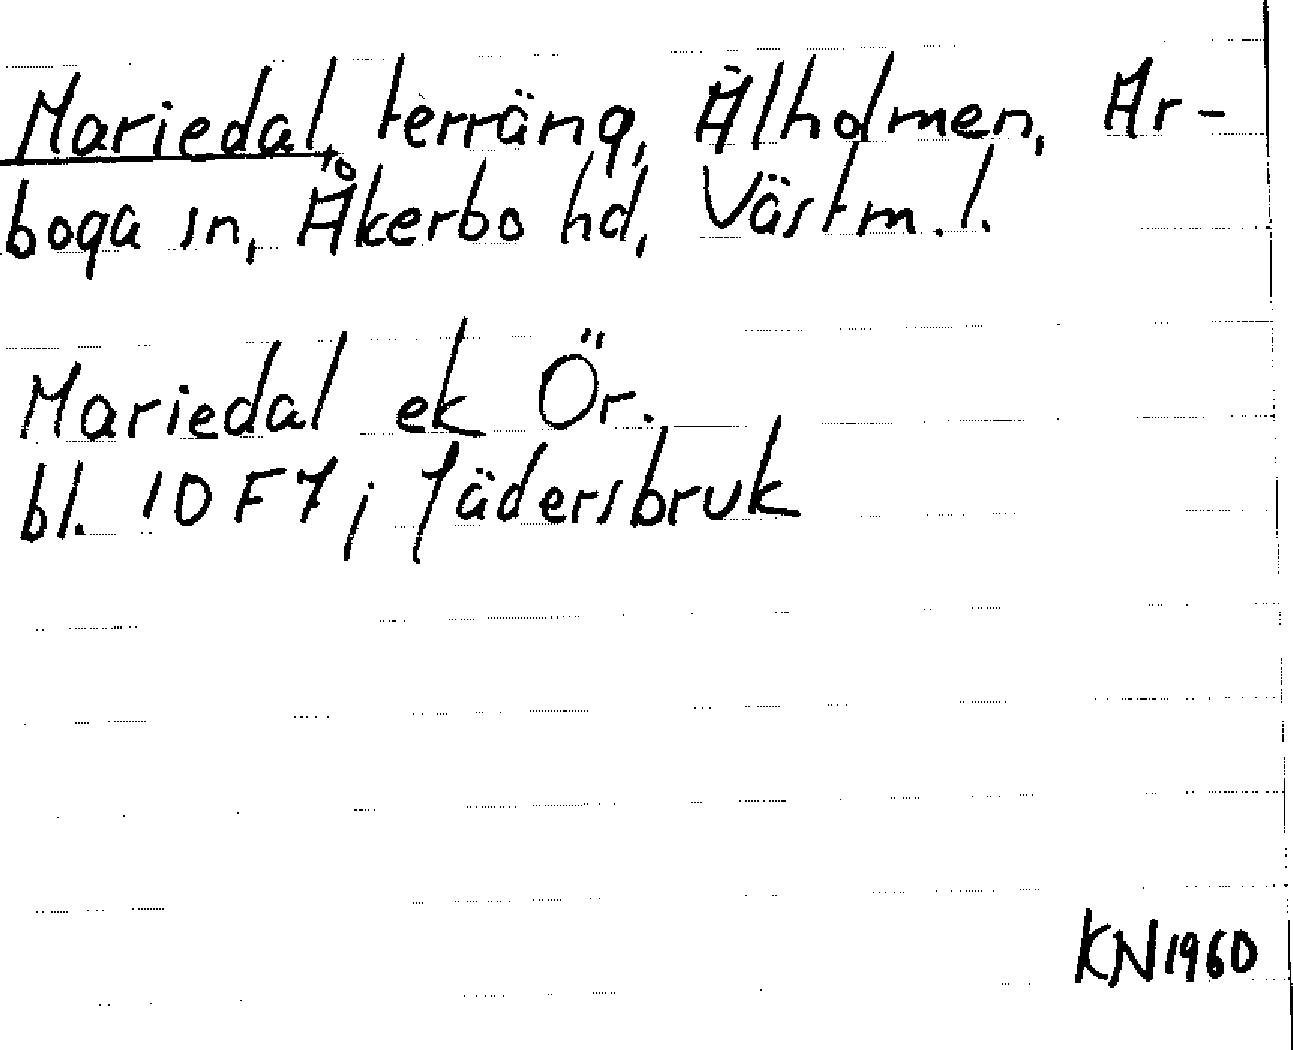 Mariedal, terräng, Älholmen, Ar-
boga sn, Åkerbo hd, Västm. l.
Mariedal ek Ör.
bl. 10F7; Jädersbruk
KN1960